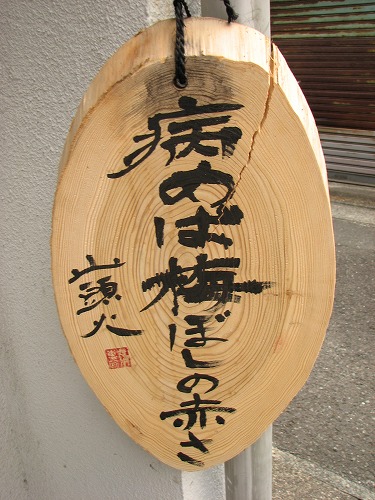 病めば梅ぼしの赤さ
山頭火